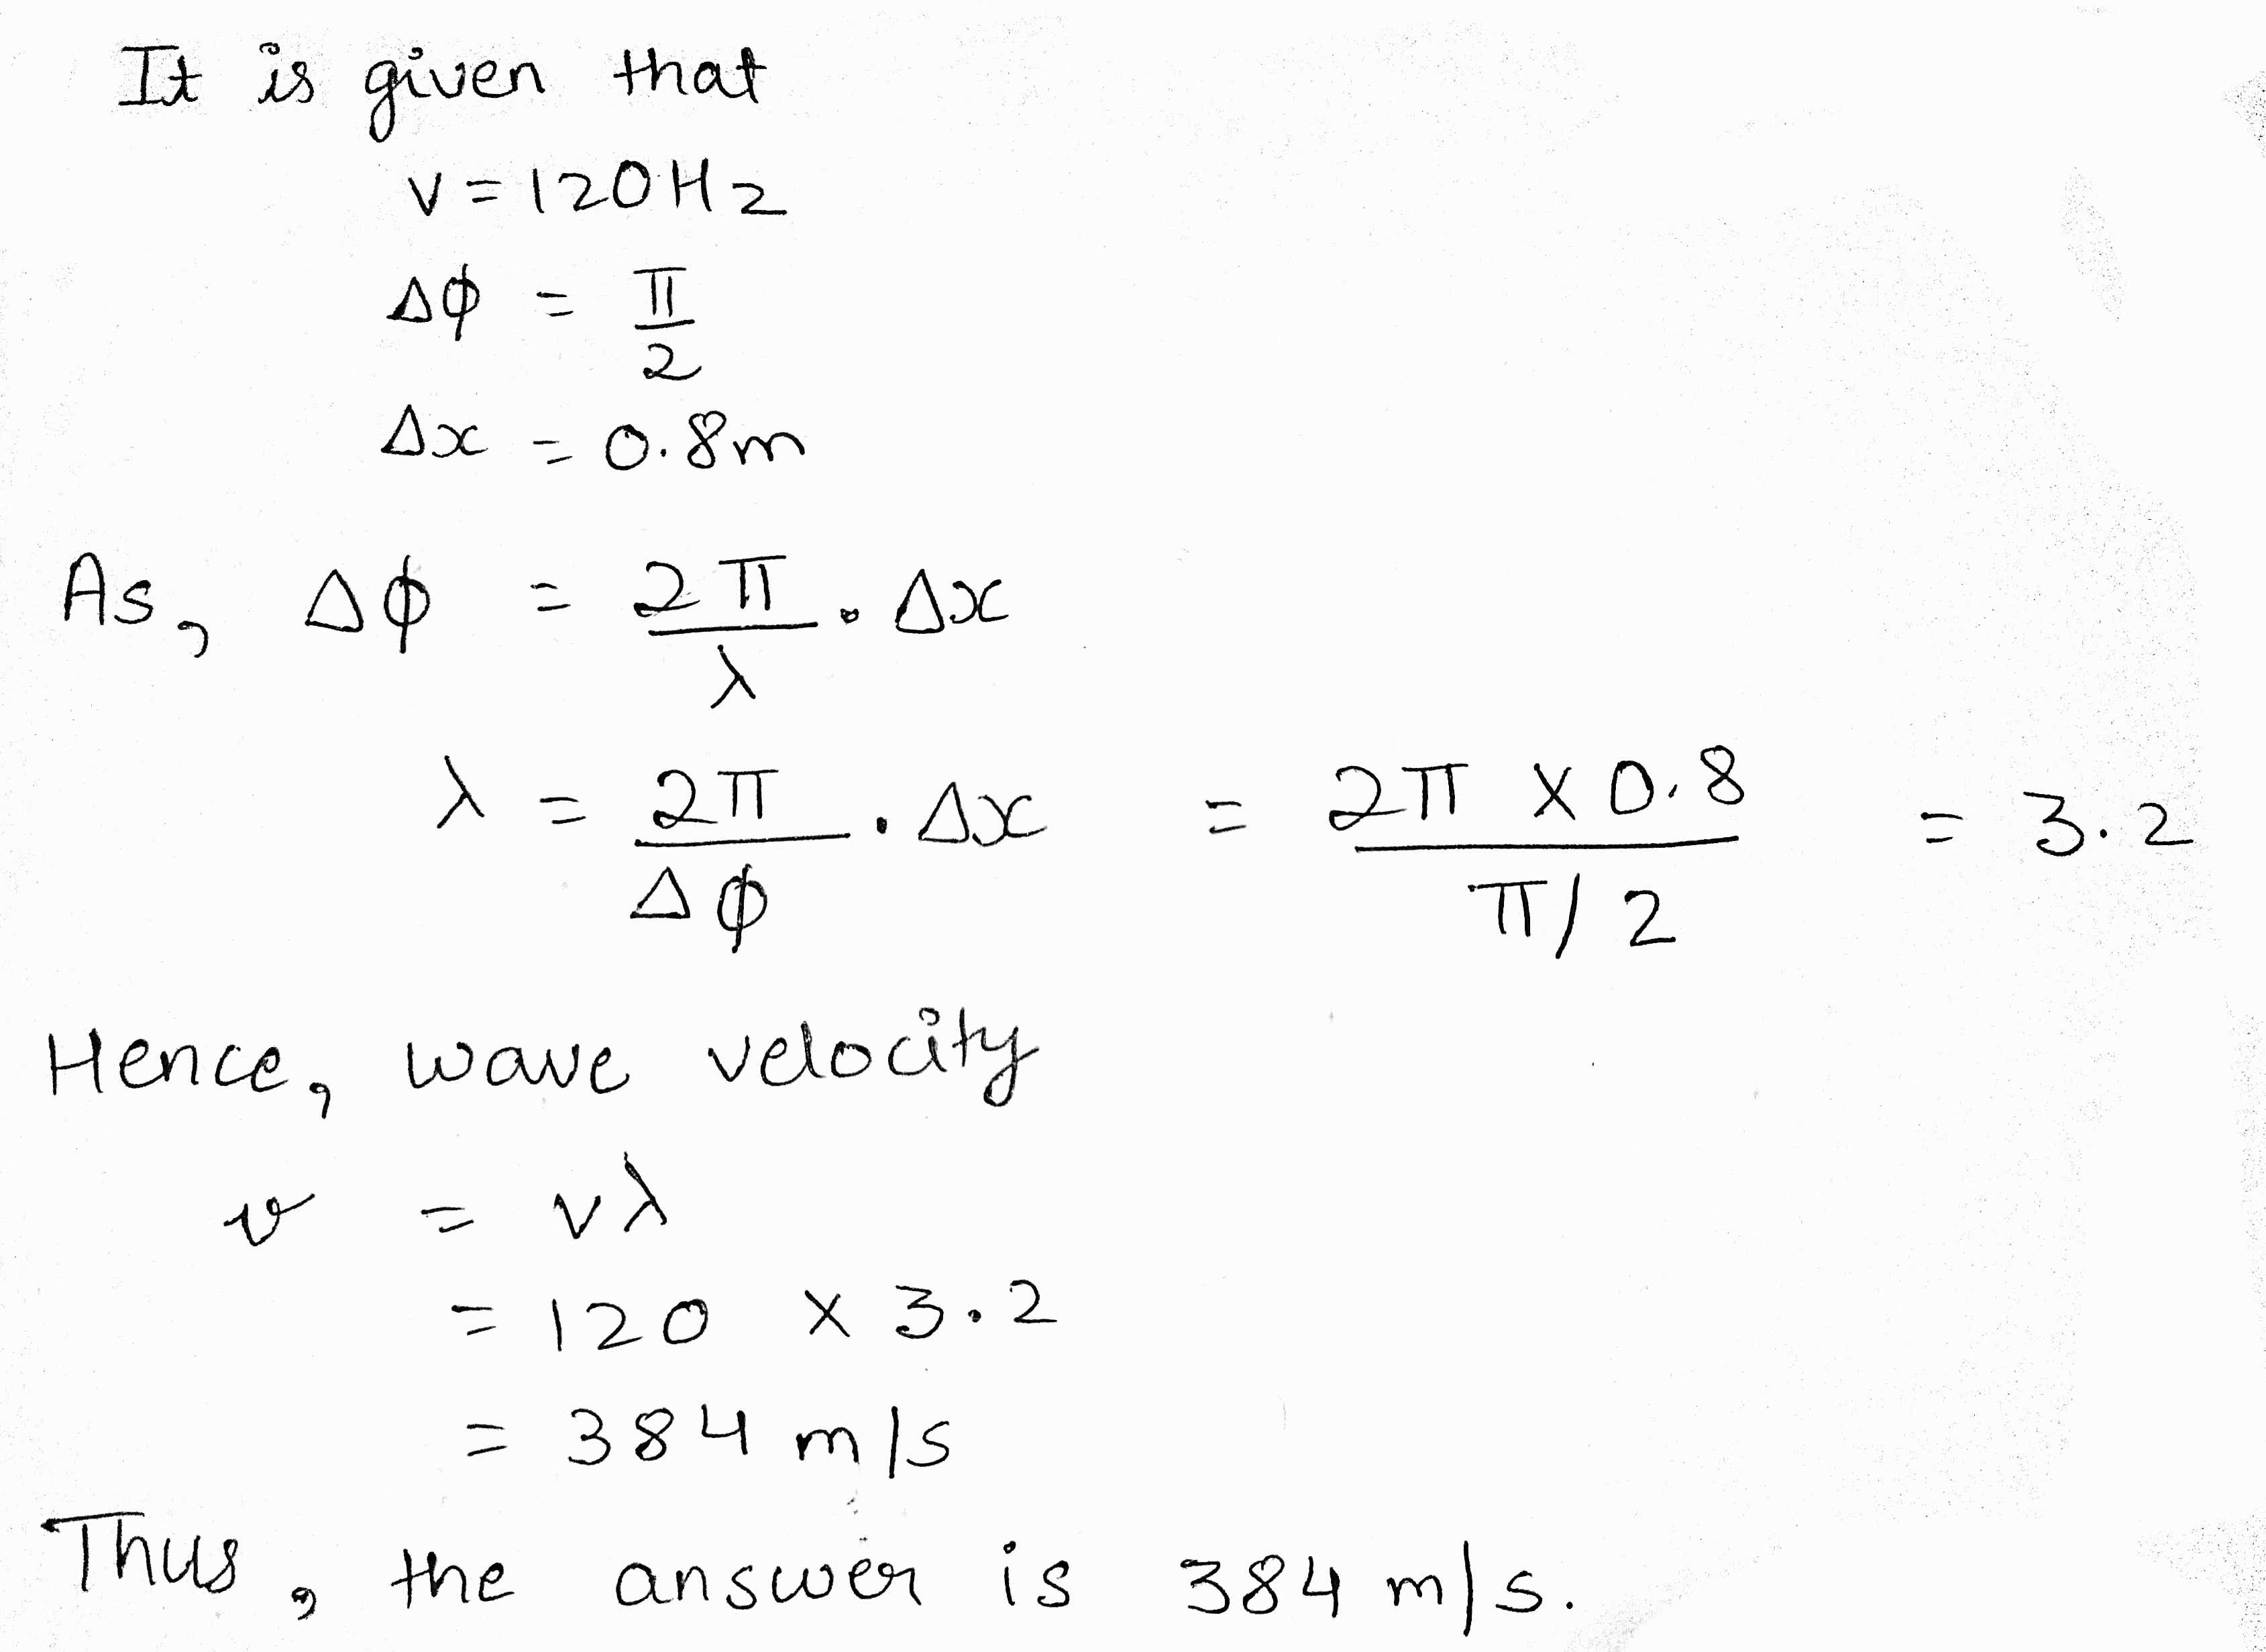 It is given that
ν = 120 Hz
Δφ = π/2
Δx = 0.8m
As, Δφ = 2π/λ . Δx
λ = 2π/Δφ . Δx = 2π × 0.8 / π/2 = 3.2
Hence, wave velocity
v = νλ
= 120 × 3.2
= 384 m/s
Thus, the answer is 384 m/s.